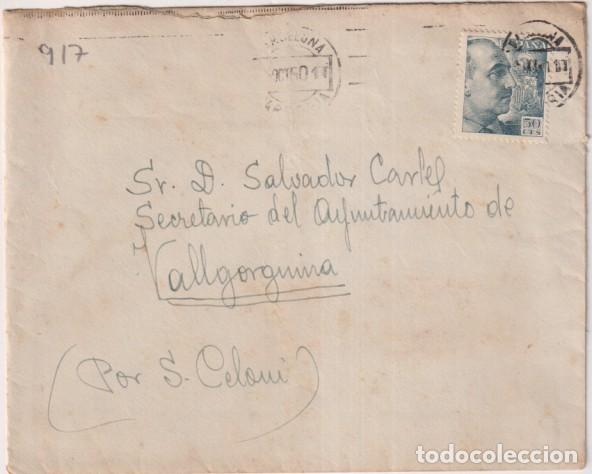 917
BARCELONA
OCT 50
ESPAÑA
50
CTS
Sr. D. Salvador Cartel
Secretario del Ayuntamiento de
Vallgorguina
(Por S. Celoni)
todocoleccion